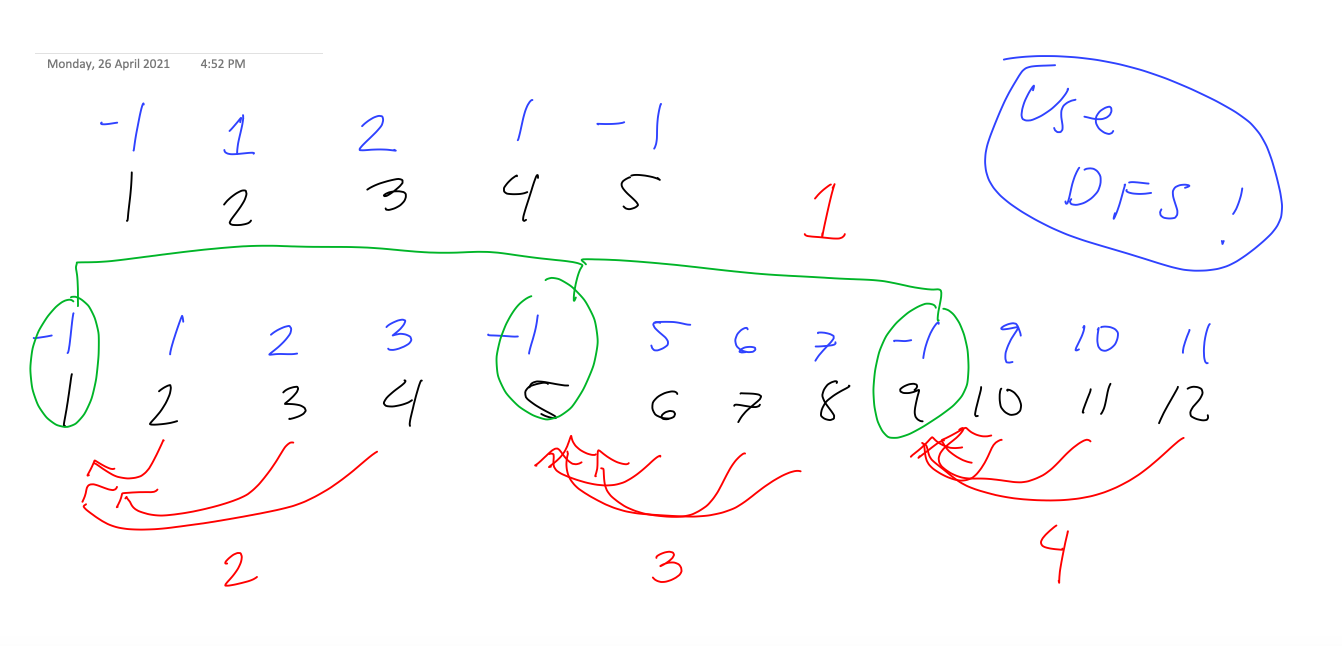 Monday, 26 April 2021 4:52 PM
Use
DFS!
-1 1 2 1 -1
1 2 3 4 5
1
-1 1 2 3 -1 5 6 7 -1 9 10 11
1 2 3 4 5 6 7 8 9 10 11 12
2 3 4